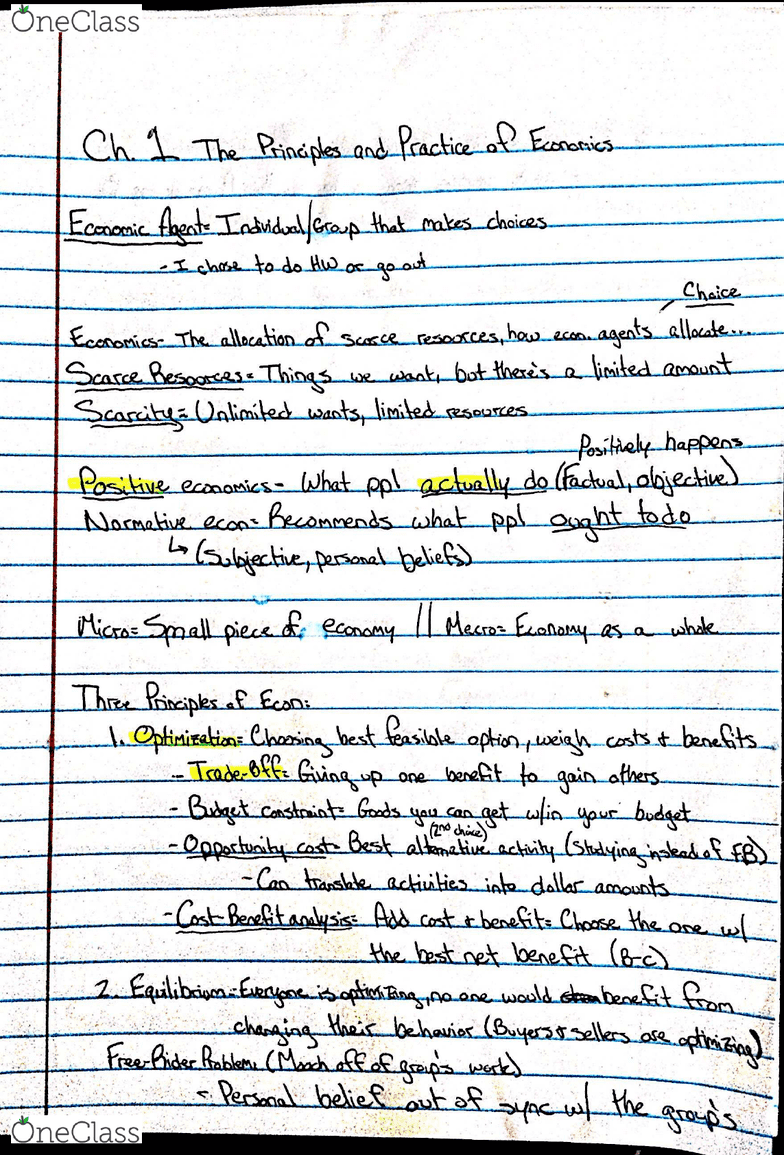 OneClass
Ch. 1 The Principles and Practice of Economics
Economic Agent= Individual/Group that makes choices
- I chose to do HW or go out
Choice
Economics- The allocation of scarce resources, how econ. agents allocate...
Scarce Resources= Things we want, but there's a limited amount
Scarcity= Unlimited wants, limited resources
Positively happens
Positive economics- What ppl actually do (Factual, objective)
Normative econ= Recommends what ppl ought to do
↳ (Subjective, personal beliefs)
Micro= Small piece of economy || Macro= Economy as a whole
Three Principles of Econ:
1. Optimization= Choosing best feasible option, weigh costs & benefits
- Trade-Off= Giving up one benefit to gain others
- Budget constraint= Goods you can get w/in your budget
(2nd choice)
- Opportunity cost- Best alternative activity (Studying instead of FB)
- Can translate activities into dollar amounts
- Cost-Benefit analysis= Add cost & benefit= Choose the one w/
the best net benefit (B-C)
2. Equilibrium- Everyone is optimizing, no one would benefit from
changing their behavior (Buyers & sellers are optimizing)
Free-Rider Problem: (Mooch off of group's work)
- Personal belief out of sync w/ the group's
OneClass